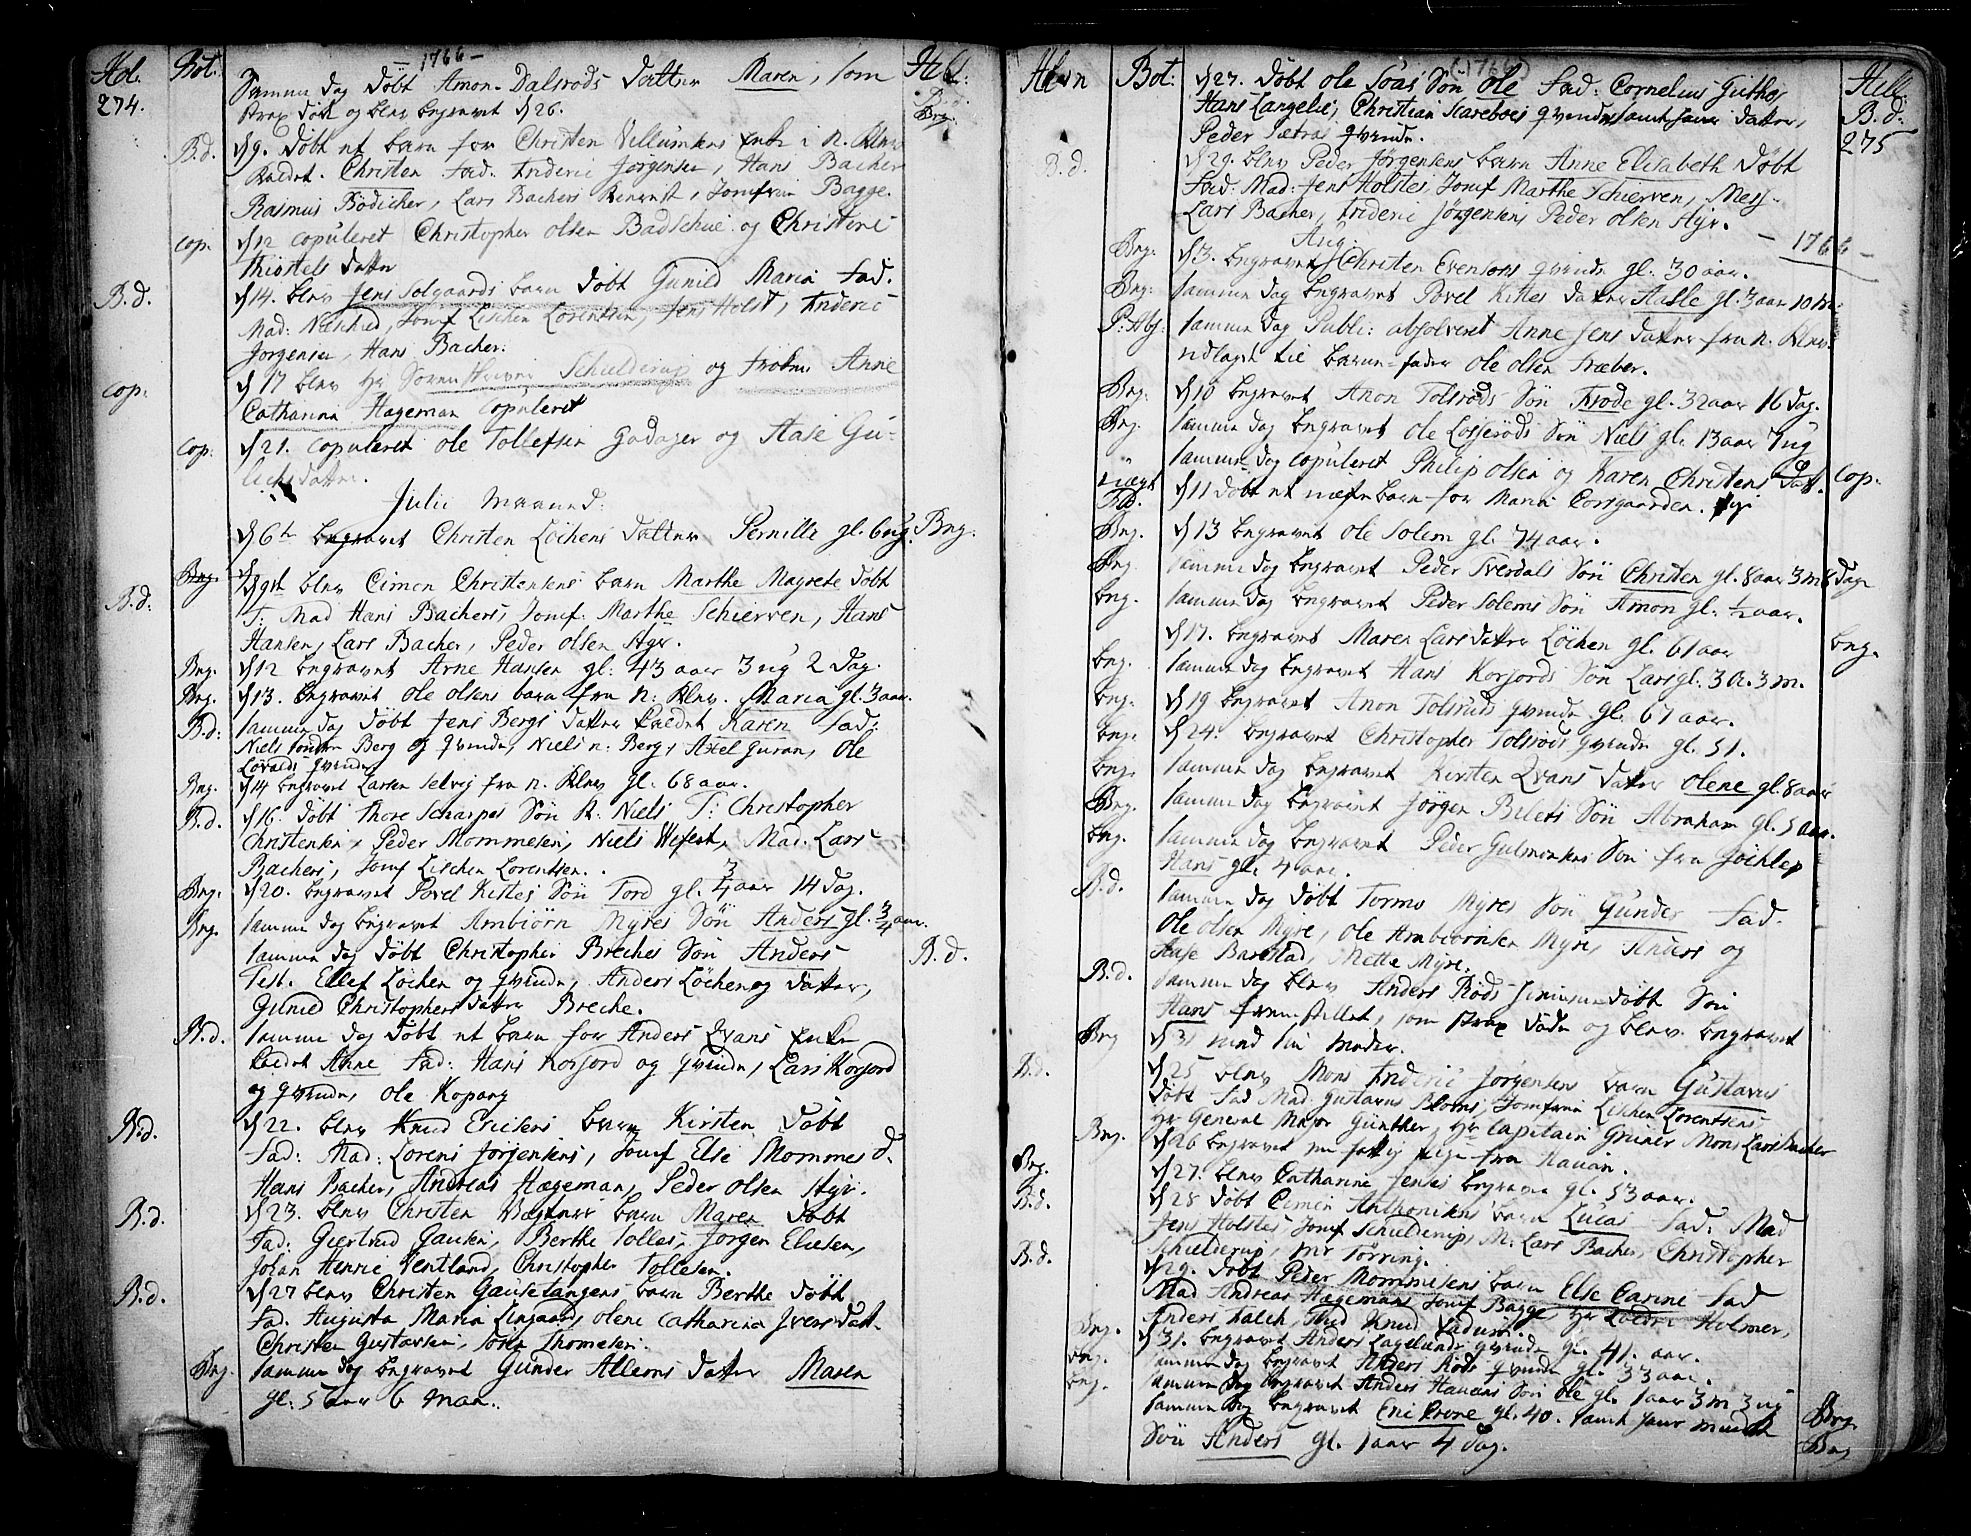 Hol. Bot. - 1766 - Hell:
274. Samme dag döbt Amon Dalsrods datter Maren, som B.d.
strax döde og blev begravet d 26. Beg.
B.d. d 9. döbt et barn for Christen Villumsens Enke i n. Klev
kaldet Christen fad. Frideric Jörgensen, Hans Bacher
Rasmus Bödicher, Lars Bachers, Jomfru Bagge.
cop. d 12 copuleret Christopher olsen Badschue og Christene
Thiostels datter
B.d. d 14. blev Jens Solgaards barn döbt Gunild Maria fad.
Mad: Jomf Lischen Lorentsen, Jens Holst, Frideric
Jörgensen, Hans Bacher:
cop. d 17 blev Hr Sören Schielderup og fröken Anne
Catharina Hageman Copuleret
cop. d 21. copuleret ole Tollefsen Godager og Aase Gu-
lichsdatter.
Julii Maaned.
d 6te begravet Christen Löchens datter Pernille gl. 6 ug. Beg.
Beg.
B.d: d 9st blev Cimen Christensens barn Marthe Magrete döbt
T: Mad Hans Bachers, Jomf: Marthe Schierven, Hans
Hansen, Lars Bacher, Peder olsen Agr.
Beg. d 12 begravet Arne Hansen gl: 43 aar 3 ug 2 dag.
Beg. d 13. begravet ole olsens barn fra n: Klev. Maria gl. 3 aar.
B.d: samme dag döbt Jens Bergs datter kaldet Karen fad:
Niels Berg og qvinde, Niels n: Berg, Axel, ole
Lövalds qvinde
Beg. d 14 begravet Larsen Selvig fra n. Klev gl. 68 aar.
B.d. d 16. döbt Thore Scharpes Sön k: Niels T: Christopher
Christensen, Peder Mommesen, Niels Wefest, Mad. Lars
Bachers, Jomf Lischen Lorentsen.
Beg. d 20. begravet Povel Kistes Sön Tord gl. 3/4 aar 14 dag.
Beg. samme dag begravet Ambiörn Myres Sön Anders gl. 3/4 aar.
samme dag döbt Christopher Breches Sön Anders B.d.
Test. Ellef Löchen og qvinde, Anders Löchen og datter,
Gunild Christophers datter Breche.
B.d. samme dag döbt et barn for Anders Evans Enke
kaldet Anne fad: Hans Korsord og qvinde, Lars Korsord
og qvinde, ole Kopang
B.d. d 22. blev Knud Ericsens barn Kirsten döbt
fad: Mad: Lorens Jörgensens, Jomf Else Mommes d.
Hans Bacher, Andreas Hageman, Peder olsen Agr.
B.d. d 23. blev Christen Wagners barn Maren döbt
fad: Giertrud Gausen, Berthe Tolles, Jörgen Eliesen,
Johan Henric Wentland, Christopher Tollesen.
B.d. d 27 blev Christen Gausetangens barn Berthe döbt
fad. Augusta Maria Lingaard, olene Catharina Ivers datt.
Christen Gustavsen, Sören Thomesen.
Beg. samme dag begravet Gunder Allerns datter Maren
gl. 5 aar 6 maa.
Hevn Bot: (1766) Hell.
d 27. döbt ole Soas Sön ole fad: Cornelius Guthes B.d:
Hans Langelie, Christian Scareboes qvinde samt hans datter, 275
Peder Sætra qvinde.
B.d. d 29. blev Peder Jörgensens barn Anne Elisabeth döbt
fad: Mad: Jens Holstes, Jomf Marthe Schierven, Mess.
Lars Bacher, Frideric Jörgensens Peder olsen Agr.
Aug. - 1766 -
Beg: d 3. begravet Christen Evensons qvinde gl. 30 aar.
Beg: samme dag begravet Povel Kistes datter Aasle gl. 3 aar 10 m:
P: Abs: samme dag Publi: absolveret Anne Jens datter fra n. Klev.
udlagde til barne-fader ole olsen Træber.
Beg: d 10 begravet Anon Tolsrods Sön Frode gl. 32 aar 16 dag.
Beg. samme dag begravet ole Losserods Sön Niels gl. 13 aar 7 ug
samme dag copuleret Philip olsen og Karen Christens datt. cop.
uægt
Fd. d 11 döbt et uægte barn for Maria Corsgaarden.
Beg. d 13 begravet ole Solem gl. 74 aar.
Beg. samme dag begravet Peder Tverdals Sön Christen gl. 8 aar 3 m 8 dage
beg. samme dag begravet Peder Solems Sön Amon gl. 1/2 aar.
d 17. begravet Maren Lars datter Löchen gl. 61 aar beg.
beg. samme dag begravet Hans Korsords Sön Lars gl. 3 a. 3 m.
beg. d 19 begravet Anon Tolsruds qvinde gl. 67 aar.
beg. d 24. begravet Christopher Tolsrods qvinde gl. 51.
beg. samme dag begravet Kirsten Evans datter olene gl. 8 aar
Beg. samme dag begravet Jörgen Bilets Sön Abraham gl. 5 aar.
beg. samme dag begravet Peder Gulmenkens Sön fra
Hans gl. 4 aar.
B.d. samme dag döbt Tormo Myres Sön Gunder fad.
Ole olsen Myre, ole Ambiörnsen Myre, Anders og
Aase Barstad, Mette Myre.
B.d. samme dag blev Anders Röds döbt Sön
Hans frem stillet, som strax döde og blev begravet
Beg d 31 med sin Moder.
B.d. d 25 blev Mons Frideric Jörgensens barn Gustavus
döbt fad Mad: Gustavus Bloms, Jomfru Lischen Lorentsens
Hr General Major Günther, Hr Capitain Gruner Mons. Lars Bacher
Beg. d 26 begravet en fattig pige fra Hauan.
Beg. d 27. blev Catharina Jenses begravet gl. 53 aar.
B.d. d 28 döbt Cimen Anthonisens barn Lucas fad: Mad
Jens Holstes, Jomf Schielderup, M: Lars Bacher, Christopher
Schielderup, Mr Törring.
B.d. d 29. döbt Peder Mommesens barn Else Carine fad
Mad Andreas Hægemans Jomf Bagge, Hr Holmer,
Anders Falch, Knud
Beg. d 31. begravet Anders Lagelands qvinde gl. 41. aar.
beg. samme dag begravet Anders Röds qvinde gl. 33 aar.
beg. samme dag begravet Anders Hauans Sön ole gl. 1 aar 3 m 3 ug
samme dag begravet Eric Crone gl. 40. samt hans mindste Beg.
Sön Anders gl. 1 aar 4 dag. Beg